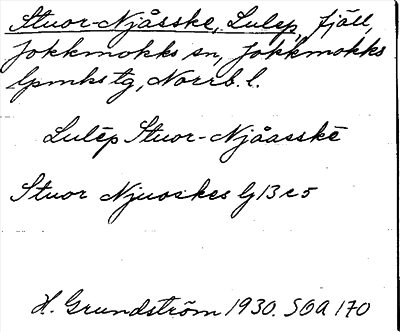 Stuor-Njåsske, Lulep, fjäll,
Jokkmokks sn, Jokkmokks
lpmks tg, Norrb. l.
Lulēp Stuor-Njåasskē
Stuor Njuoskes G 13 c 5
H. Grundström 1930. SOA 170